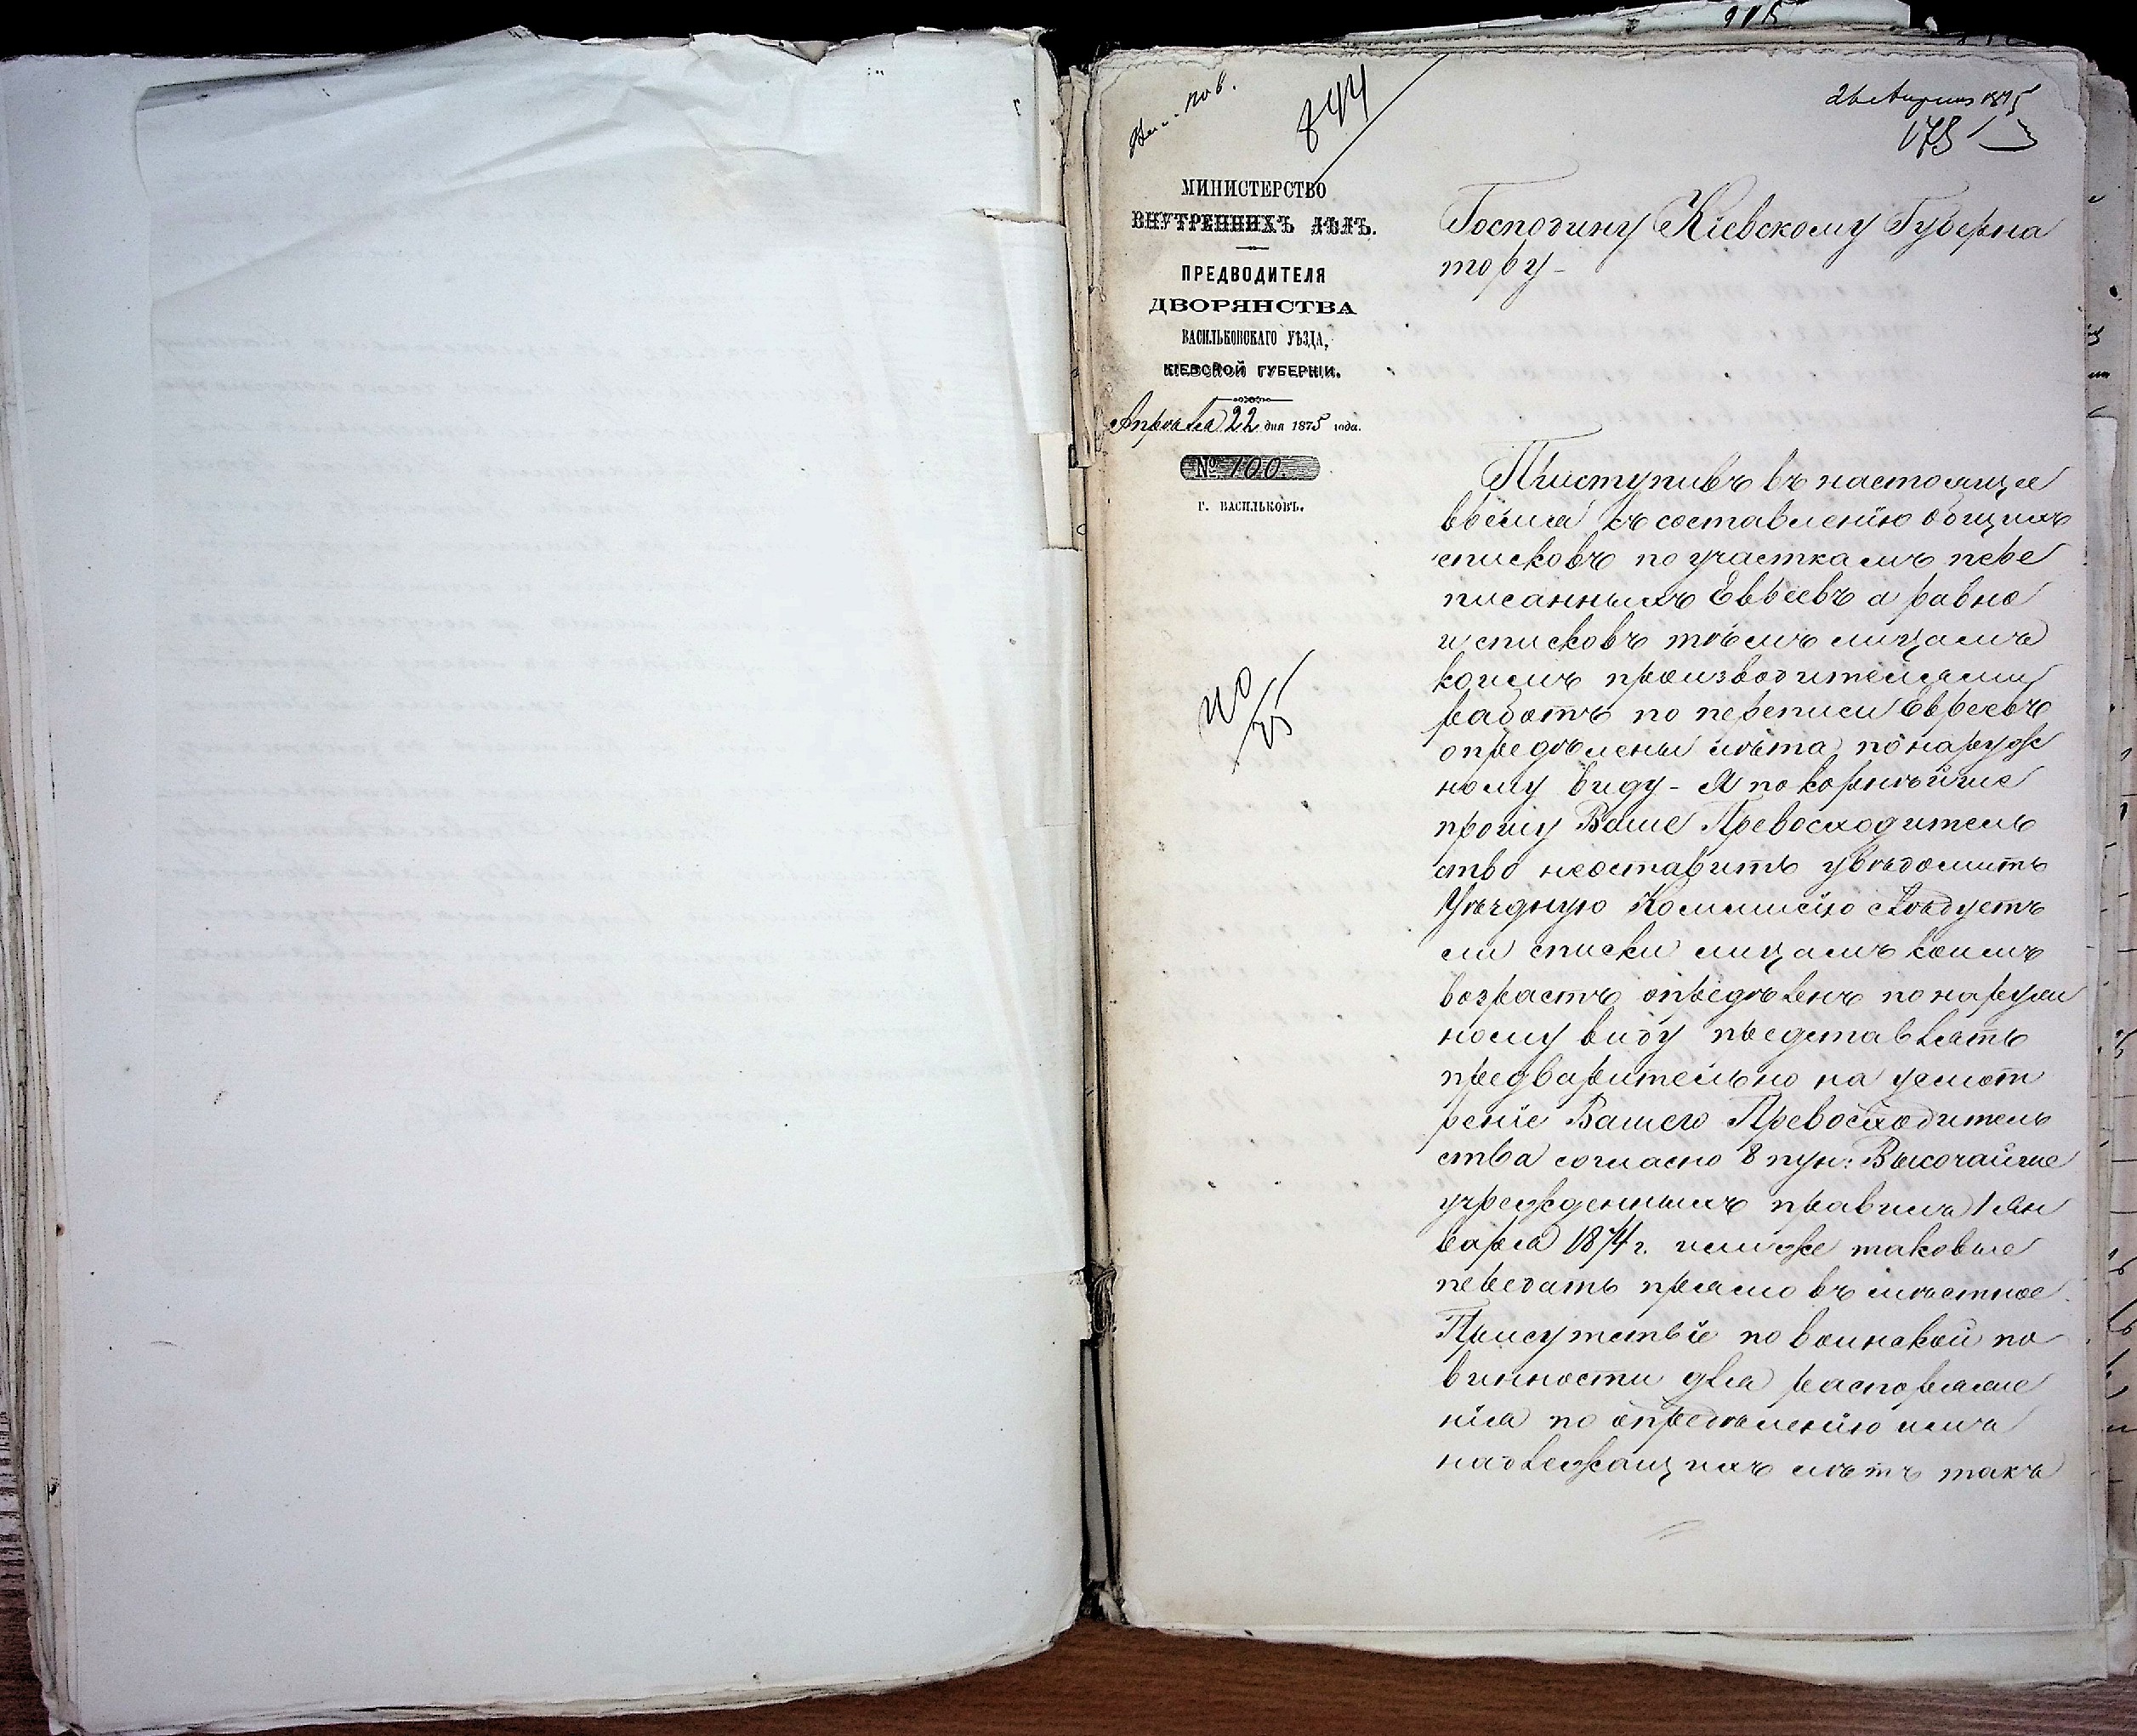 844
МИНИСТЕРСТВО
ВНУТРЕННИХЪ ДѢЛЪ.
ПРЕДВОДИТЕЛЯ
ДВОРЯНСТВА
ВАСИЛЬКОВСКАГО УѢЗДА,
КІЕВСКОЙ ГУБЕРНІИ.
Апрѣля 22 дня 1875 года.
№ 100.
Г. ВАСИЛЬКОВЪ.
26 Апрѣля 1875
175
Господину Кіевскому Губерна
тору -
Приступивъ въ настоящее
время къ составленію общихъ
списковъ по участкамъ пере
писанныхъ Евреевъ а равно
и списковъ тѣмъ лицамъ
коимъ производителями
работъ по переписи Евреевъ
опредѣлены лѣта по наруж
ному виду - Я покорнѣйше
прошу Ваше Превосходитель
ство неоставить увѣдомить
Уѣздную Коммисію слѣдуетъ
ли списки лицамъ коимъ
возрастъ опредѣленъ по наруж
ному виду представлять
предварительно на усмот
реніе Вашего Превосходитель
ства согласно 8 пун: Высочайше
учрежденныхъ правилъ 1 Ян
варя 1874 г. илиже таковые
передать прямо въ мѣстное
Присутствіе по воинской по
винности для распоряже
нія по опредѣленію имъ
надлежащихъ лѣтъ такъ